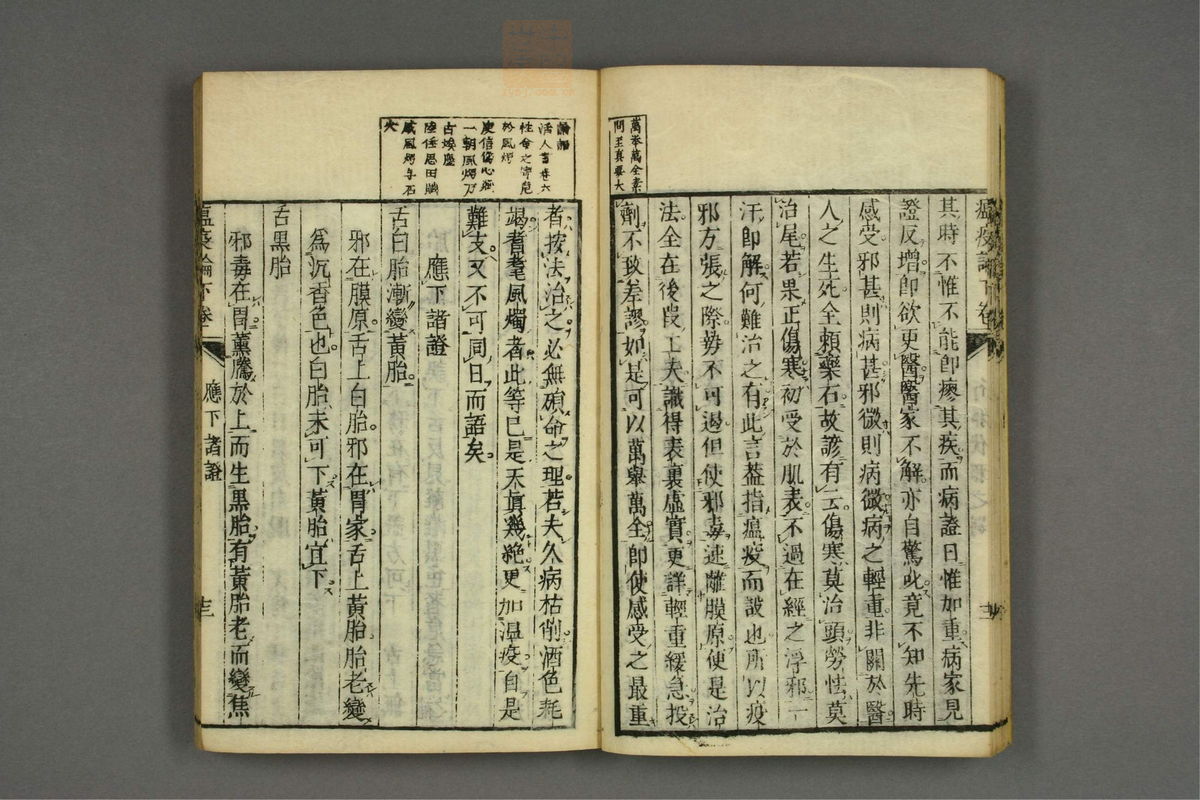 其時不惟不能即瘳其疾而病證日惟加重病家見
證反增即欲更醫醫家不解亦自驚疑竟不知先時
感受邪甚則病甚邪微則病微病之輕重非關於醫
人之生死全賴藥石故諺有云傷寒莫治頭勞怯莫
治尾若果正傷寒初受於肌表不過在經之浮邪一
汗即解何難治之有此言葢指瘟疫而設也所以疫
邪方張之際勢不可遏但使邪毒速離膜原便是治
法全在後段工夫識得表裏虛實更詳輕重緩急投
劑不致差謬如是可以萬舉萬全即使感受之最重
萬舉萬全素
問至真要大
論語
活人書卷六
性命之寄危
於風燭
庾信傷心賦
一朝風燭万
古埃塵
陸倕思田賦
感風燭与石
火
者按法治之必無殞命之理若夫久病枯削酒色耗
竭耆耄風燭者此等已是天真幾絕更加溫疫自是
難支又不可同日而語矣
應下諸證
舌白胎漸變黃胎
邪在膜原舌上白胎邪在胃家舌上黃胎胎老變
為沉香色也白胎未可下黃胎宜下
舌黑胎
邪毒在胃薰騰於上而生黑胎有黃胎老而變焦
瘟疫論下卷
應下諸證